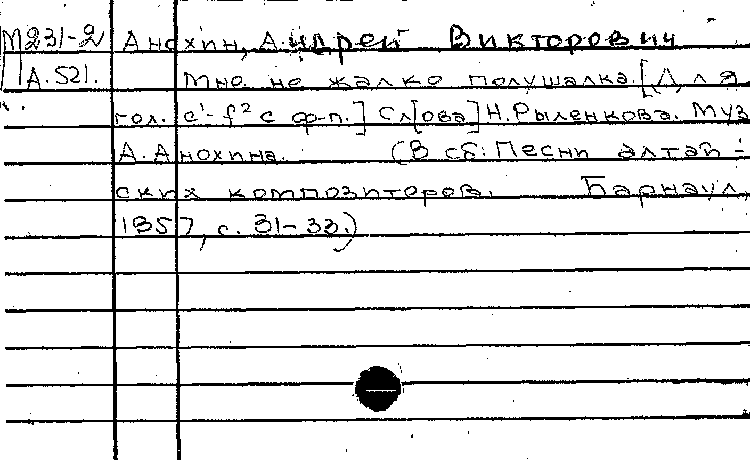 М231-2 Анохин, Андрей Викторович
А.521. Мне не жалко полушалка. [Для
гол. c¹-f² с ф-п.] Сл[ова] Н.Рыленкова. Муз
А.Анохина. (В сб: Песни алтай-
ских композиторов. Барнаул,
1957, с. 31-33.)